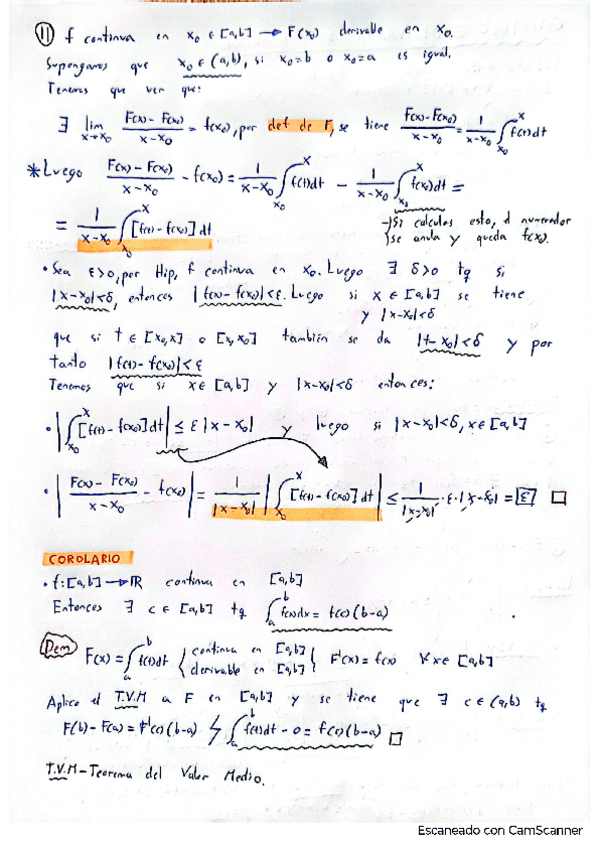 11) f continua en x₀ ∈ [a,b] → F(x₀) derivable en x₀.
Supongamos que x₀ ∈ (a,b), si x₀=b o x₀=a es igual.
Tenemos que ver que:
∃ lim x→x₀ (F(x) - F(x₀))/(x-x₀) = f(x₀), por def de F, se tiene (F(x)-F(x₀))/(x-x₀) = 1/(x-x₀) ∫_{x₀}^{x} f(t)dt
* Luego (F(x) - F(x₀))/(x-x₀) - f(x₀) = 1/(x-x₀) ∫_{x₀}^{x} f(t)dt - 1/(x-x₀) ∫_{x₀}^{x} f(x₀)dt =
= 1/(x-x₀) ∫_{x₀}^{x} [f(t) - f(x₀)] dt
→ Si calculas esto, el numerador
se anula y queda f(x₀).
• Sea ε>0, por Hip, f continua en x₀. Luego ∃ δ>0 tq si
|x-x₀|<δ, entonces |f(x)-f(x₀)|<ε. Luego si x ∈ [a,b] se tiene
y |x-x₀|<δ
que si t ∈ [x₀,x] o [x,x₀] también se da |t-x₀|<δ y por
tanto |f(t)-f(x₀)|<ε
Tenemos que si x∈[a,b] y |x-x₀|<δ entonces:
• |∫_{x₀}^{x} [f(t)-f(x₀)]dt| ≤ ε|x-x₀| y luego si |x-x₀|<δ, x∈[a,b]
• |(F(x) - F(x₀))/(x-x₀) - f(x₀)| = 1/|x-x₀| |∫_{x₀}^{x} [f(t)-f(x₀)]dt| ≤ 1/|x-x₀| · ε · |x-x₀| = ε □
COROLARIO
• f:[a,b]→ℝ continua en [a,b]
Entonces ∃ c ∈ [a,b] tq ∫_a^b f(x)dx = f(c)(b-a)
Dem F(x) = ∫_a^b f(t)dt { continua en [a,b]
derivable en [a,b] } F'(x) = f(x) ∀x∈[a,b]
Aplico el T.V.M a F en [a,b] y se tiene que ∃ c∈(a,b) tq
F(b)-F(a) = F'(c)(b-a) ∫_a^b f(t)dt - 0 = f(c)(b-a) □
T.V.M - Teorema del Valor Medio.
Escaneado con CamScanner